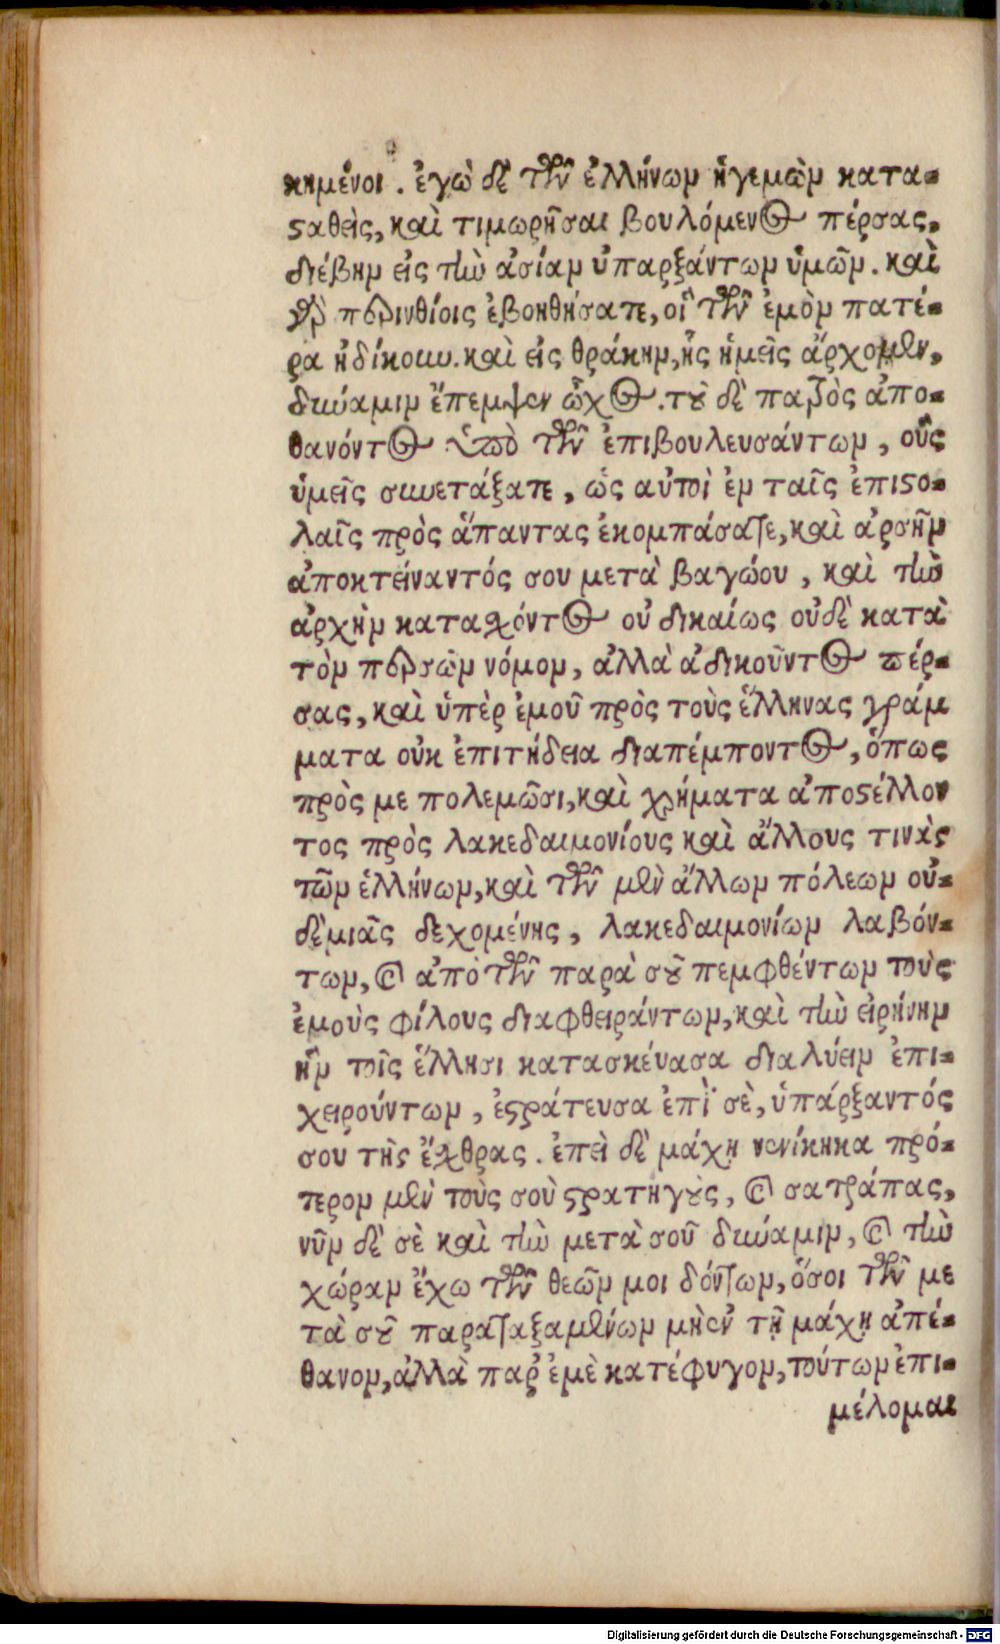 κημένοι. ἐγὼ δὲ τῶν ἑλλήνων ἡγεμὼν κατα-
ϛαθεὶς, καὶ τιμωρῆσαι βουλόμενος πέρσας,
διέβην εἰς τὴν ἀσίαν ὑπαρξάντων ὑμῶν. καὶ
γὰρ περινθίοις ἐβοηθήσατε, οἳ τὸν ἐμὸν πατέ-
ρα ἠδίκουν. καὶ εἰς θράκην, ἧς ἡμεῖς ἄρχομεν,
δύναμιν ἔπεμψεν ὦχος. τοῦ δὲ πατρὸς ἀπο-
θανόντος ὑπὸ τῶν ἐπιβουλευσάντων, οὓς
ὑμεῖς συνετάξατε, ὡς αὐτοὶ ἐν ταῖς ἐπιϛο-
λαῖς πρὸς ἅπαντας ἐκομπάσατε, καὶ ἀρσῆν
ἀποκτείναντός σου μετὰ βαγώου, καὶ τὴν
ἀρχὴν κατασχόντος οὐ δικαίως οὐδὲ κατὰ
τὸν περσῶν νόμον, ἀλλὰ ἀδικοῦντος πέρ-
σας, καὶ ὑπὲρ ἐμοῦ πρὸς τοὺς ἕλληνας γράμ
ματα οὐκ ἐπιτήδεια διαπέμποντος, ὅπως
πρὸς με πολεμῶσι, καὶ χρήματα ἀποϛέλλον
τος πρὸς λακεδαιμονίους καὶ ἄλλους τινὰς
τῶν ἑλλήνων, καὶ τῶν μὲν ἄλλων πόλεων οὐ-
δεμιᾶς δεχομένης, λακεδαιμονίων λαβόν-
των, καὶ ἀπὸ τῶν παρὰ σοῦ πεμφθέντων τοὺς
ἐμοὺς φίλους διαφθειράντων, καὶ τὴν εἰρήνην
ἣν τοῖς ἕλλησι κατασκέυασα διαλύειν ἐπι-
χειρούντων, ἐϛράτευσα ἐπὶ σὲ, ὑπάρξαντός
σου τὴς ἔχθρας. ἐπεὶ δὲ μάχῃ νενίκηκα πρό-
τερον μὲν τοὺς σοὺ ϛρατηγοὺς, καὶ σατράπας,
νῦν δὲ σὲ καὶ τὴν μετὰ σοῦ δύναμιν, καὶ τὴν
χώραν ἔχω τῶν θεῶν μοι δόντων, ὅσοι τῶν με
τὰ σοῦ παραταξαμένων μὴ ἐν τῇ μάχῃ ἀπέ-
θανον, ἀλλὰ παρ᾽ ἐμὲ κατέφυγον, τούτων ἐπι-
μέλομαι
Digitalisierung gefördert durch die Deutsche Forschungsgemeinschaft - DFG